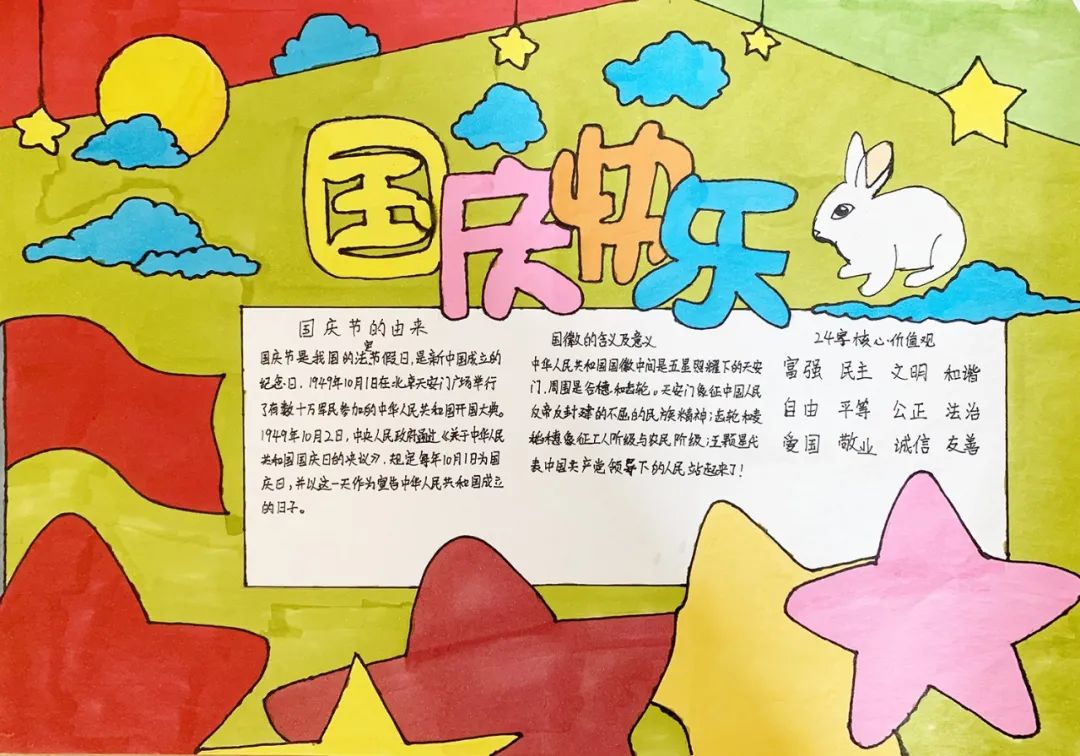 国庆快乐
国庆节的由来
国庆节是我国的法定节假日,是新中国成立的
纪念日。1949年10月1日在北京天安门广场举行
了有数十万军民参加的中华人民共和国开国大典。
1949年10月2日,中央人民政府通过《关于中华人民
共和国国庆日的决议》,规定每年10月1日为国
庆日,并以这一天作为宣告中华人民共和国成立
的日子。
国徽的含义及意义
中华人民共和国国徽中间是五星照耀下的天安
门,周围是谷穗和齿轮。天安门象征中国人民
反帝反封建的不屈的民族精神;齿轮和麦
穗象征工人阶级与农民阶级;五颗星代
表中国共产党领导下的人民站起来了!
24字核心价值观
富强 民主 文明 和谐
自由 平等 公正 法治
爱国 敬业 诚信 友善